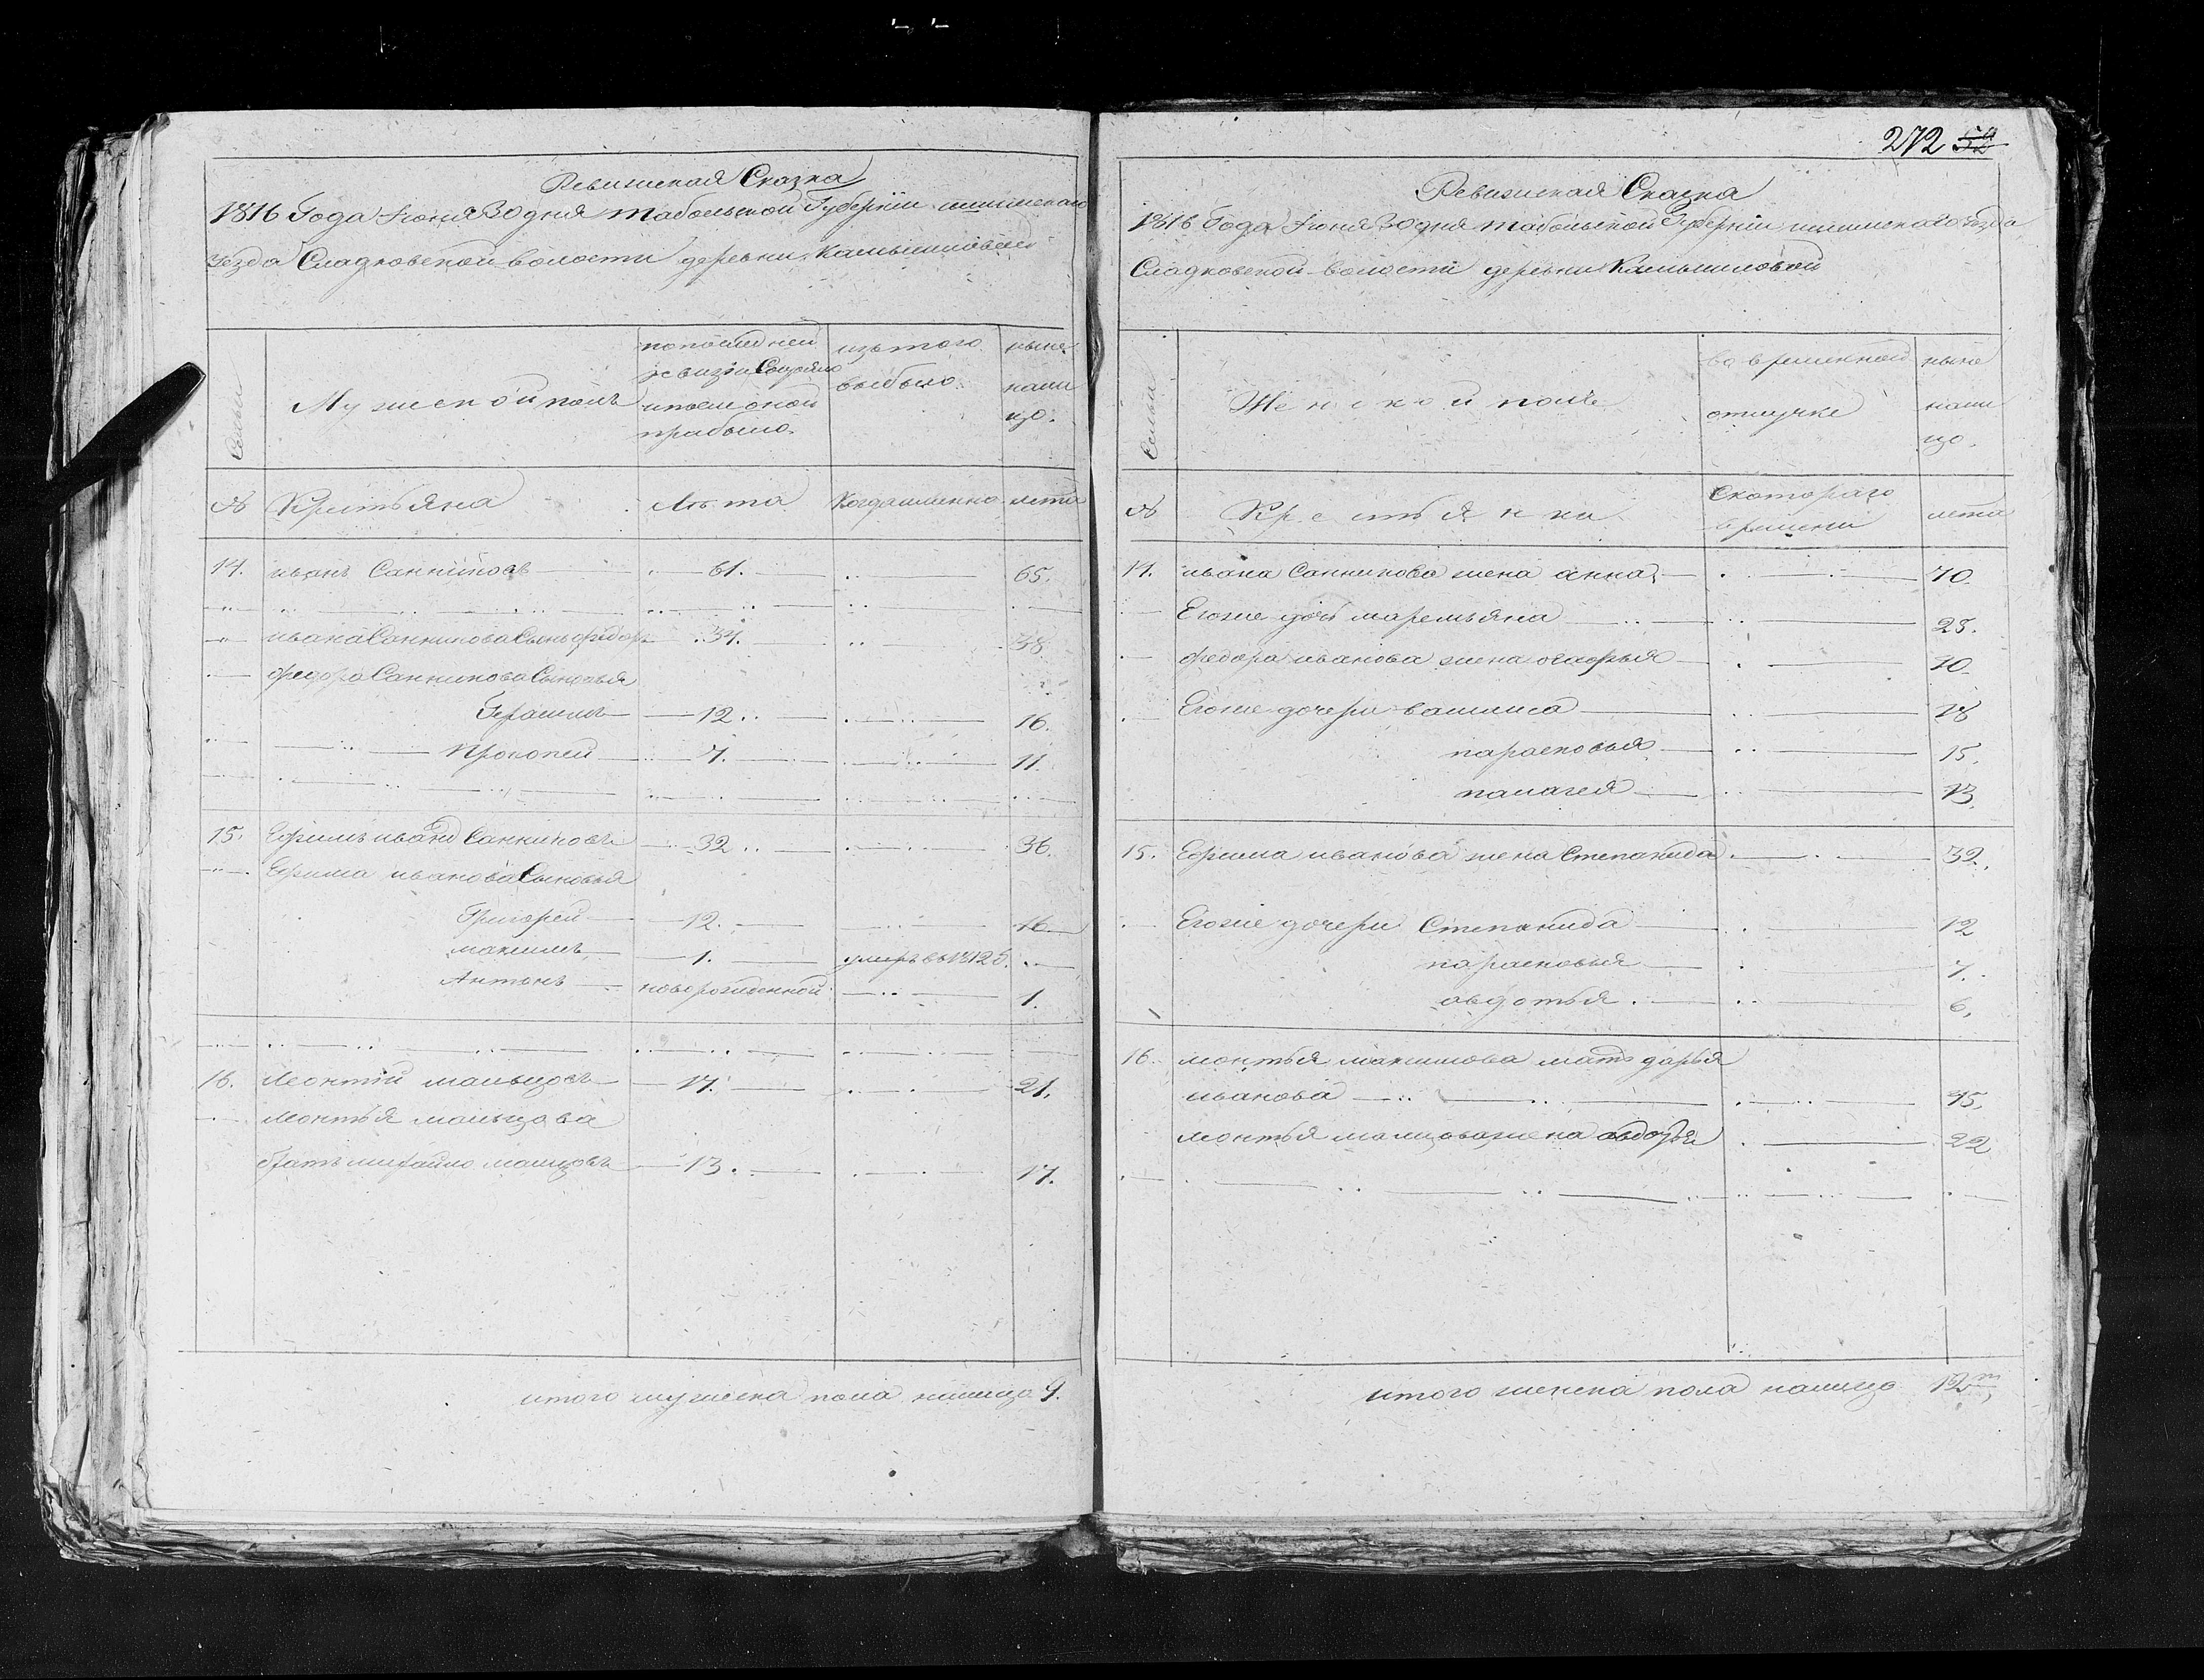 272 52
Ревижская Сказка
1816 Года Июня 30 дня табольской Губернии ишимскаго
уезда Сладковской волости деревни Камышловской
Семьи
Мужеской полъ
по последней
ревизiи Состояло
и после оной
прибыло.
изъ того
выбыло
ныне
нали
цо.
№ Крестьяна Лѣта Когда именно лета
14. иванъ Санниковъ 61. 65.
ивана Санникова Сынъ федоръ 34. 38
федора Санникова Сыновья
Герасимъ 12. 16.
Прокопей 7. 11.
15. Ефимъ иванов Санниковъ 32 36.
Ефима иванова Сыновья
Григорей 12. 16
максимъ 1. умеръ въ 1812
Антонъ новорожденной 1.
16. Леонтий мальцовъ 17. 21.
леонтья мальцова
братъ михайло малцовъ 13. 17.
итого мужеска пола налицо 9.
Ревижская Сказка
1816 Года Июня 30 дня табольской Губернии ишимскаго уезда
Сладковской волости деревни Камышловской
Семьи
Женской полъ
во временной
отлучке
ныне
нали
цо.
№ Крестьянки
С котораго
времени
лета
14. ивана Санникова жена анна 70.
Егоже дочь маремьяна 25.
федора иванова жена 40.
Егоже дочери василиса 18
парасковья 15.
палагея 13.
15. Ефима иванова жена Степанида 32.
Егоже дочери Степанида 12
парасковья 7.
авдотья 6.
16. леонтья максимова мать дарья
иванова 45.
леонтья малцова жена авдотья 22
итого женска пола налицо 12